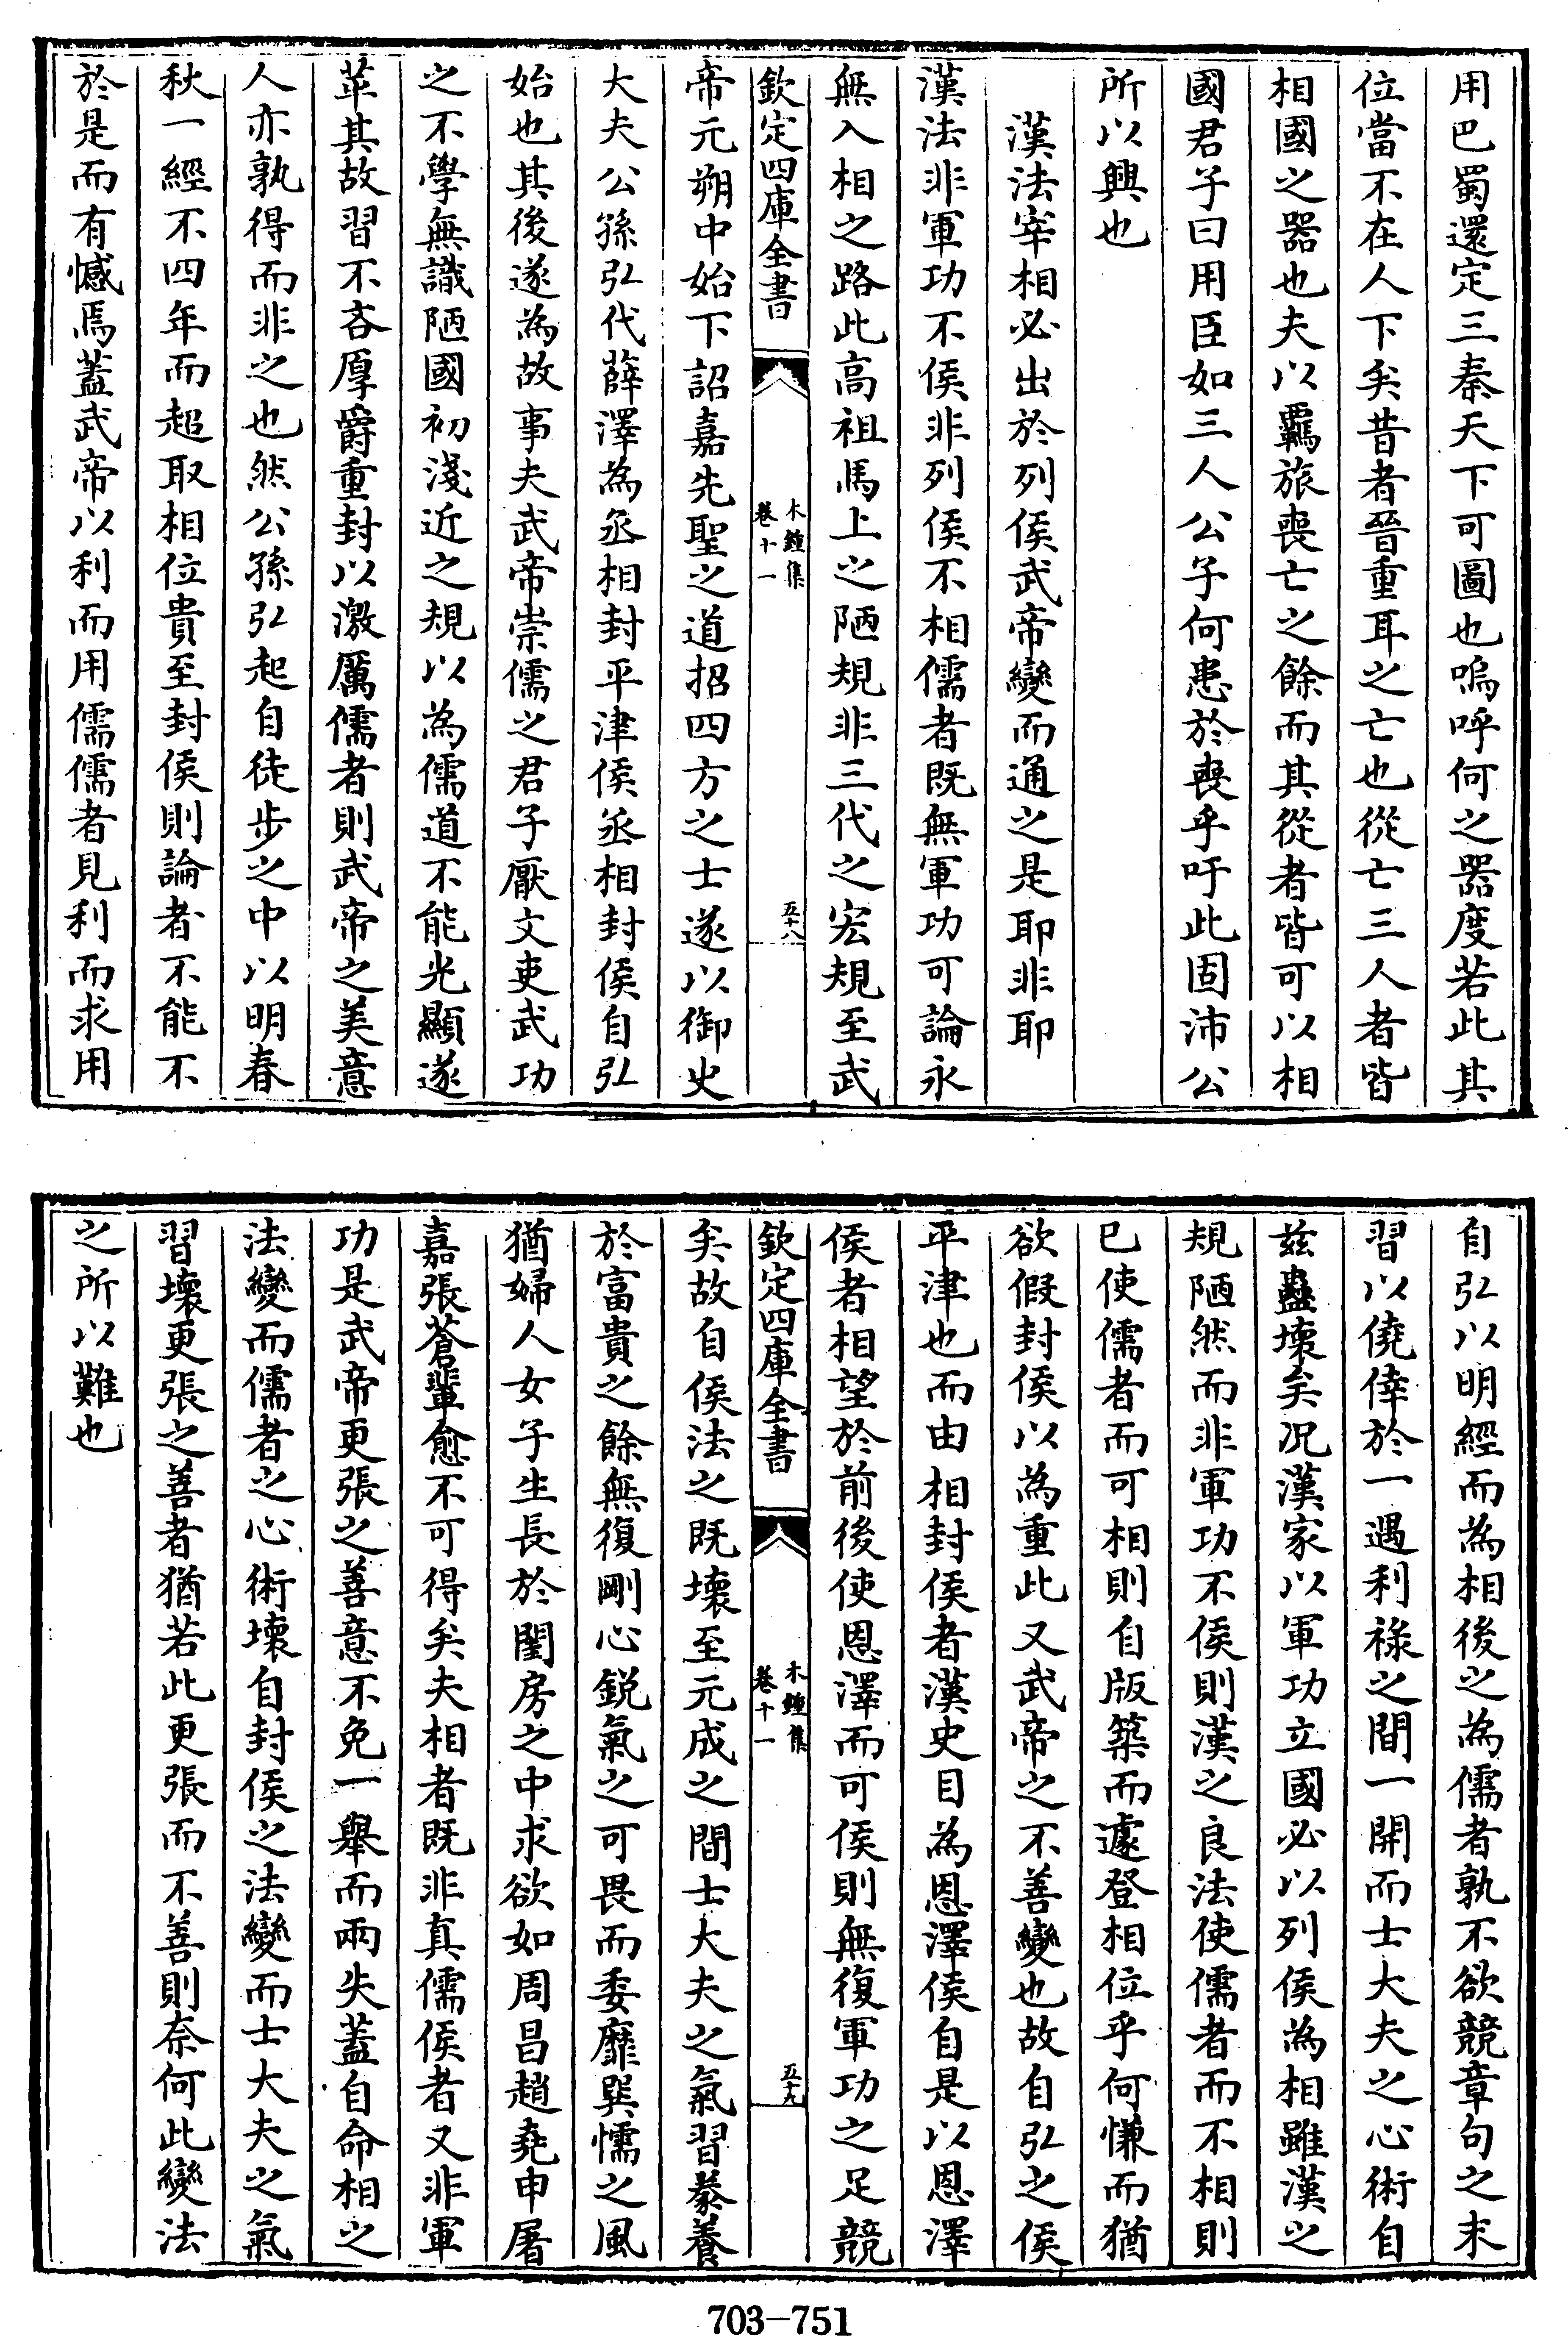 用巴蜀還定三秦天下可圖也嗚呼何之器度若此其
位當不在人下矣昔者晉重耳之亡也從亡三人者皆
相國之器也夫以羈旅喪亡之餘而其從者皆可以相
國君子曰用臣如三人公子何患於喪乎吁此固沛公
所以興也
漢法宰相必出於列侯武帝變而通之是耶非耶
漢法非軍功不侯非列侯不相儒者既無軍功可論永
無入相之路此高祖馬上之陋規非三代之宏規至武
欽定四庫全書
木鍾集
卷十一
五十八
帝元朔中始下詔嘉先聖之道招四方之士遂以御史
大夫公孫弘代薛澤為丞相封平津侯丞相封侯自弘
始也其後遂為故事夫武帝崇儒之君子厭文吏武功
之不學無識陋國初淺近之規以為儒道不能光顯遂
革其故習不吝厚爵重封以激厲儒者則武帝之美意
人亦孰得而非之也然公孫弘起自徒步之中以明春
秋一經不四年而超取相位貴至封侯則論者不能不
於是而有憾焉蓋武帝以利而用儒儒者見利而求用
自弘以明經而為相後之為儒者孰不欲競章句之末
習以僥倖於一遇利祿之間一開而士大夫之心術自
兹蠱壞矣况漢家以軍功立國必以列侯為相雖漢之
規陋然而非軍功不侯則漢之良法使儒者而不相則
已使儒者而可相則自版築而遽登相位乎何慊而猶
欲假封侯以為重此又武帝之不善變也故自弘之侯
平津也而由相封侯者漢史目為恩澤侯自是以恩澤
侯者相望於前後使恩澤而可侯則無復軍功之足競
欽定四庫全書
木鍾集
卷十一
五十九
矣故自侯法之既壞至元成之間士大夫之氣習豢養
於富貴之餘無復剛心鋭氣之可畏而委靡巽懦之風
猶婦人女子生長於閨房之中求欲如周昌趙堯申屠
嘉張蒼輩愈不可得矣夫相者既非真儒侯者又非軍
功是武帝更張之善意不免一舉而兩失蓋自命相之
法變而儒者之心術壞自封侯之法變而士大夫之氣
習壞更張之善者猶若此更張而不善則奈何此變法
之所以難也
703-751